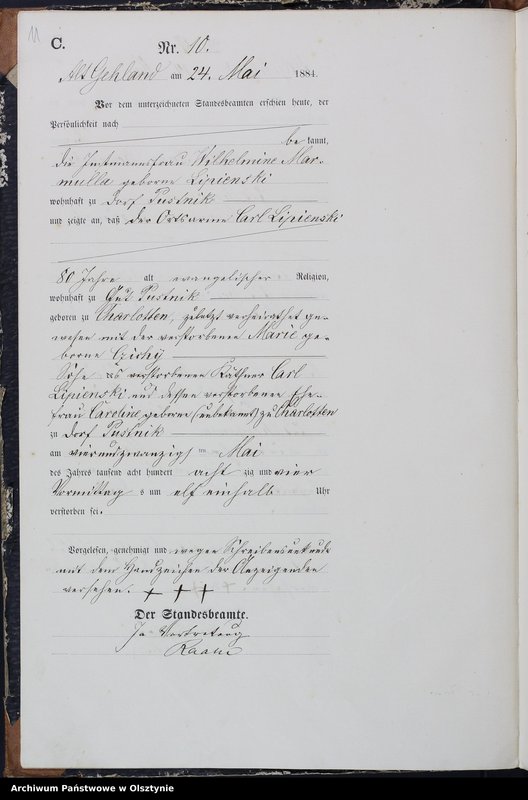 11
C.
Nr. 10.
Alt Gehland am 24. Mai 1884.
Vor dem unterzeichneten Standesbeamten erschien heute, der
Persönlichkeit nach
be kannt,
die Instmannsfrau Wilhelmine Mar-
mulla geborne Lipienski
wohnhaft zu Dorf Pustnik
und zeigte an, daß der Ortsarme Carl Lipienski
80 Jahre alt evangelischer Religion,
wohnhaft zu Gut Pustnik
geboren zu Charlotten, zuletzt verheirathet ge-
wesen mit der verstorbenen Marie ge-
borne Czichy
Sohn des verstorbenen Käthner Carl
Lipienski und dessen verstorbenen Ehe-
frau Caroline, geborne (unbekannt) zu Charlotten
zu Dorf Pustnik
am vierundzwanzigsten Mai
des Jahres tausend acht hundert acht zig und vier
Vormittag s um elf einhalb Uhr
verstorben sei.
Vorgelesen, genehmigt und wegen Schreibensunkunde
mit dem Handzeichen der Anzeigenden
versehen. + + +
Der Standesbeamte.
In Vertretung
Archiwum Państwowe w Olsztynie